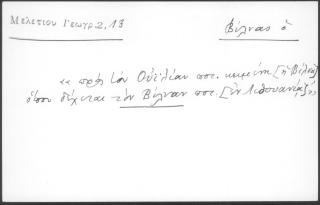 Μελετίου Γεωγρ 2, 13
Βίλνας ὁ
«« πρὸς τὸν Οὐελίαν ποτ. κειμένη [ἡ Βίλνα]
ὅπου δέχεται τὸν Βίλναν ποτ. [ἐν Λιθουανίᾳ]»»